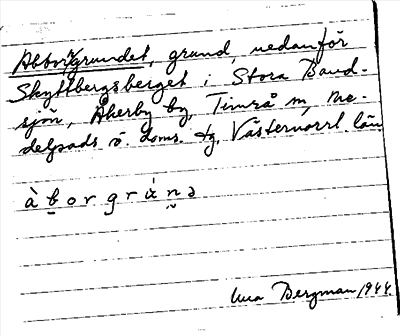 Abborrgrundet, grund, nedanför
Skyttbergsberget i Stora Band-
sjön, Åkerby by, Timrå sn, Me-
delpads ö. doms. tg, Västernorrl. län
à b̬ o r g r á n̬ ə
Bergman 1944.